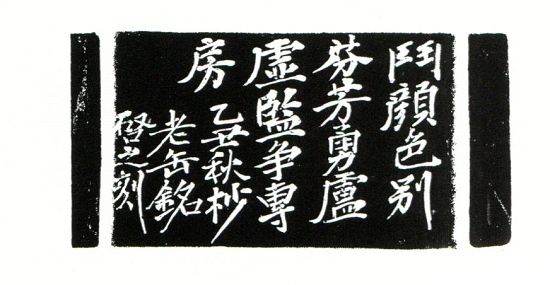 鬥顏色别
芬芳勇盧
虛監争專
房
乙丑秋杪
老缶銘
之刻